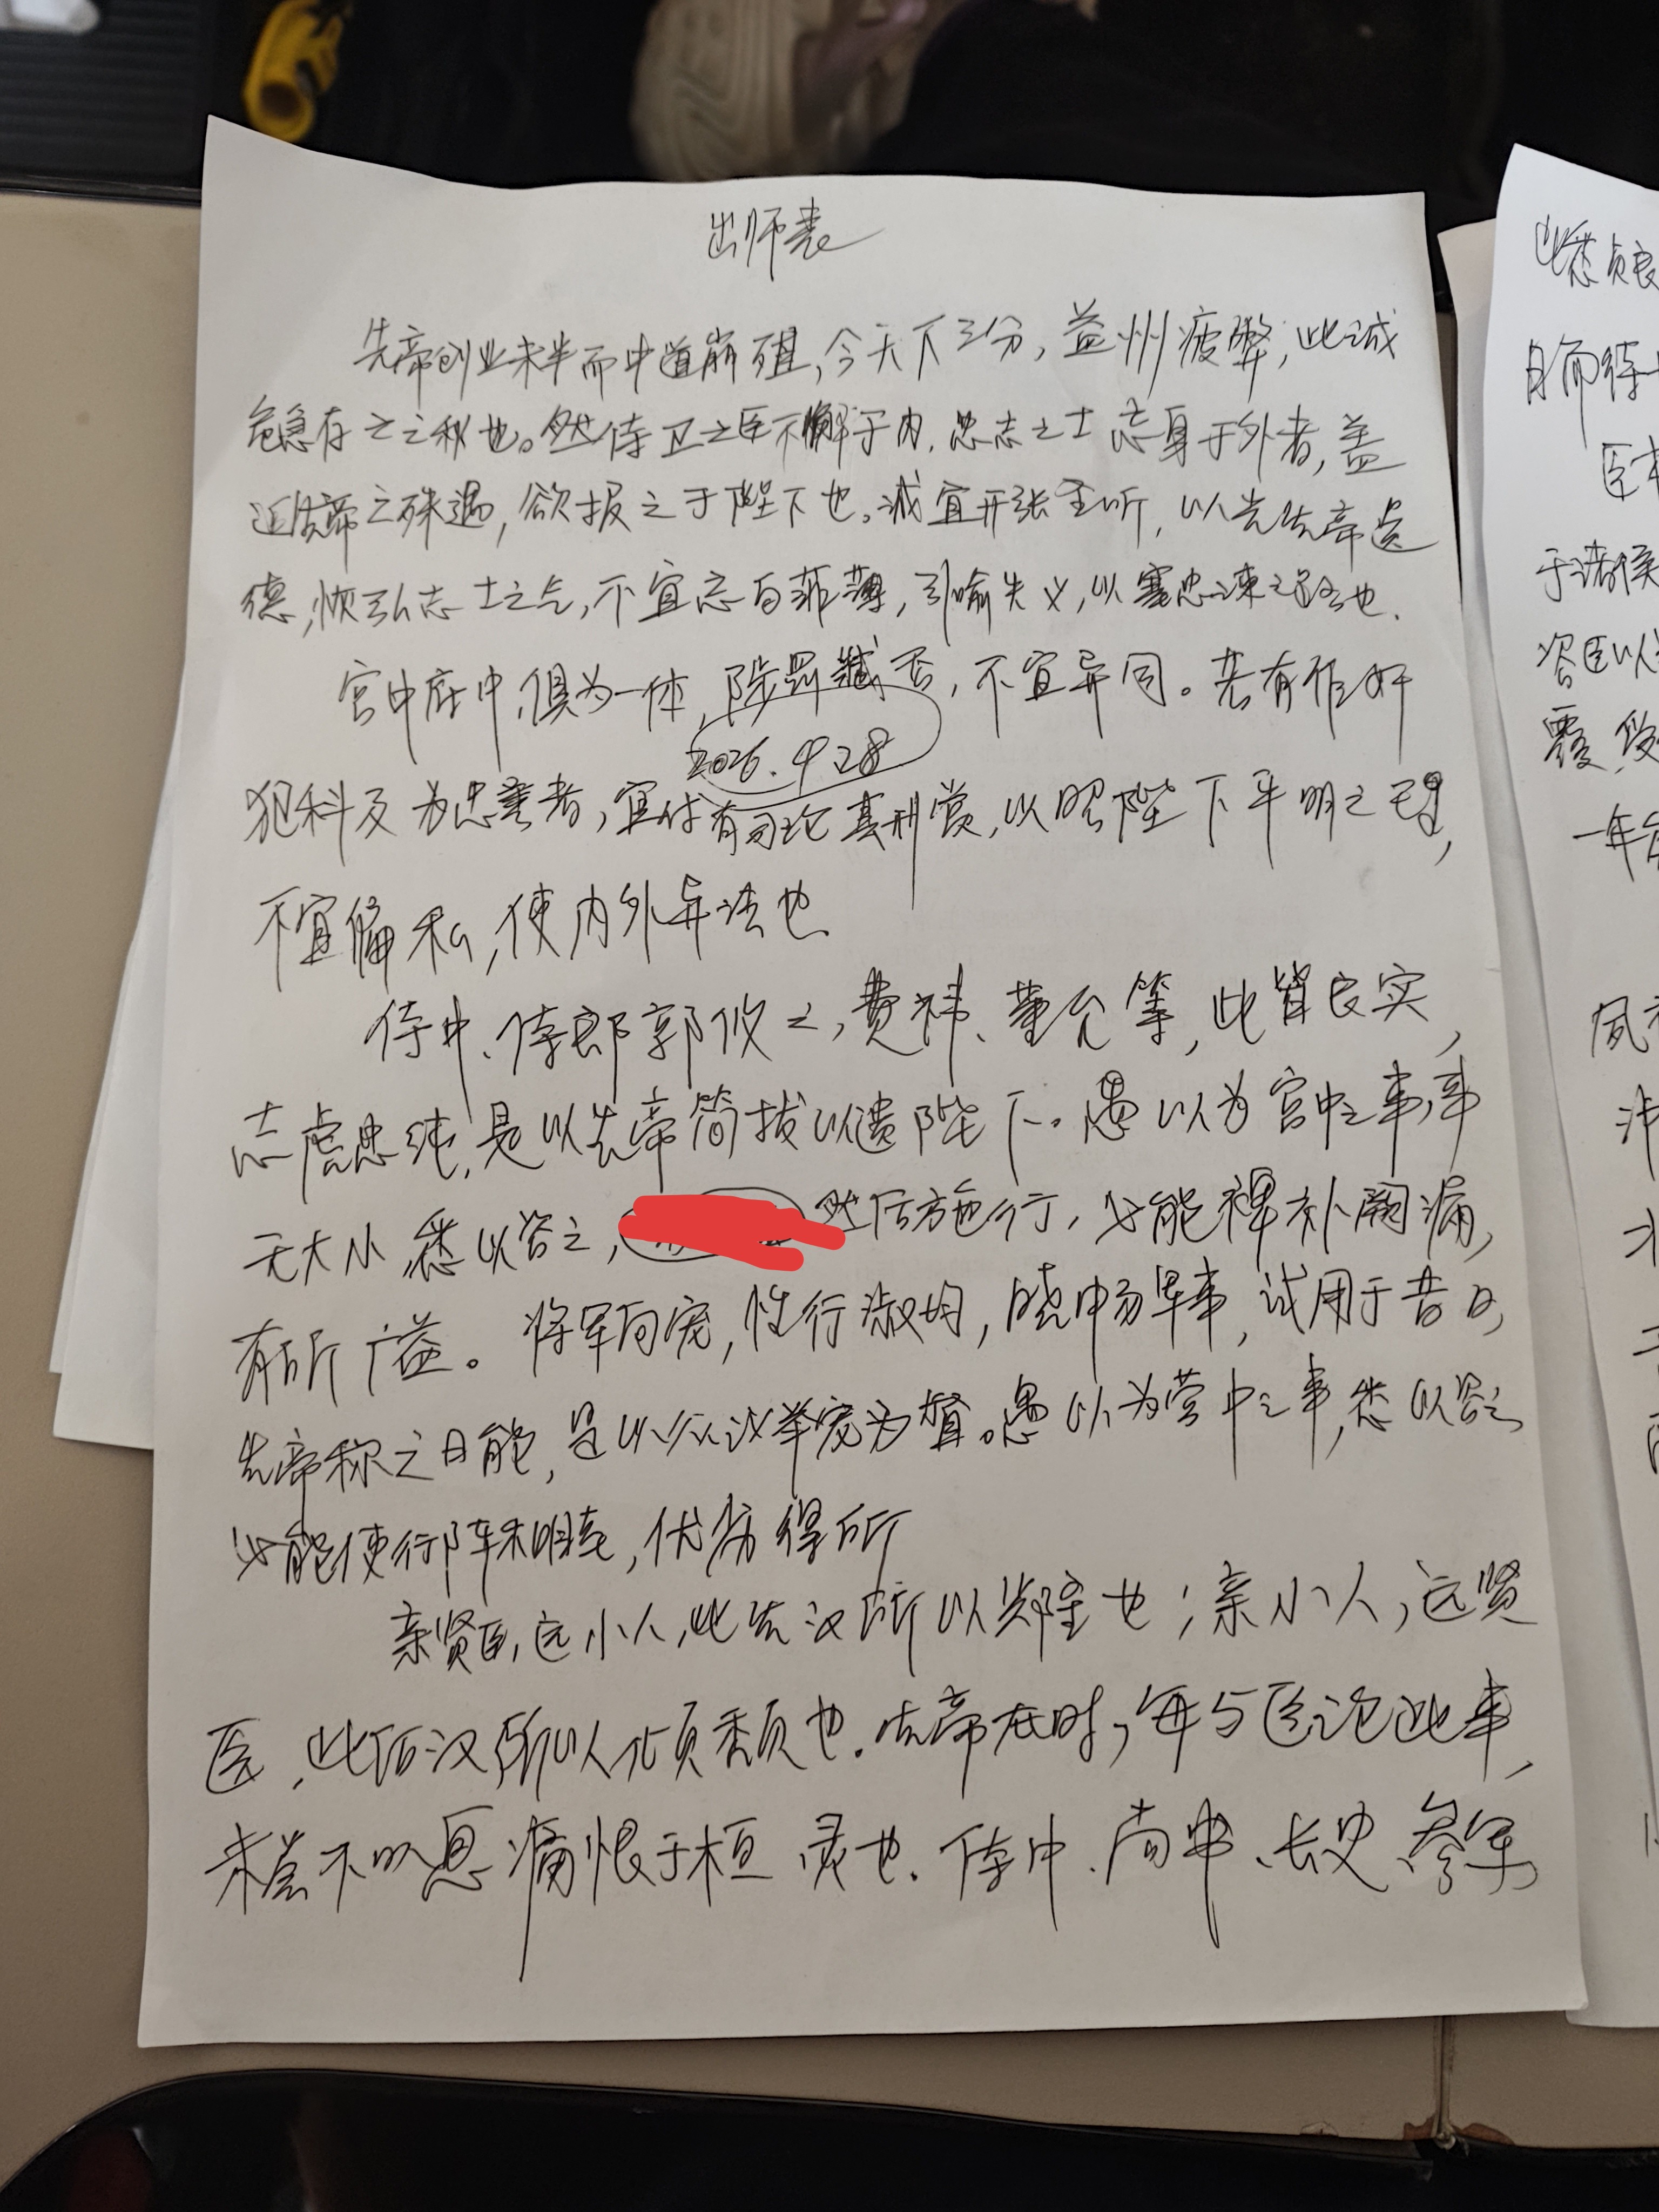 出师表
先帝创业未半而中道崩殂,今天下三分,益州疲弊,此诚
危急存之之秋也。然侍卫之臣不懈于内,忠志之士忘身于外者,盖
追先帝之殊遇,欲报之于陛下也。诚宜开张圣听,以光先帝遗
德,恢弘志士之气,不宜忘自菲薄,引喻失义,以塞忠谏之路也.
宫中府中,俱为一体,陟罚臧否,不宜异同。若有作奸
2026.4.28
犯科及为忠善者,宜付有司论其刑赏,以昭陛下平明之理,
不宜偏私,使内外异法也.
侍中、侍郎郭攸之,费祎、董允等,此皆良实,
志虑忠纯,是以先帝简拔以遗陛下。愚以为宫中之事,事
无大小,悉以咨之,然后施行,必能裨补阙漏,
有所广益。将军向宠,性行淑均,晓畅军事,试用于昔日,
先帝称之曰能,是以众议举宠为督。愚以为营中之事,悉以咨之
必能使行阵和睦,优劣得所
亲贤臣,远小人,此先汉所以兴隆也;亲小人,远贤
臣,此后汉所以倾颓也.先帝在时,每与臣论此事,
未尝不叹息痛恨于桓灵也.侍中、尚书、长史、参军,
此悉贞良
日而待
臣本
于诸侯
咨臣以
覆,受
一年
夙